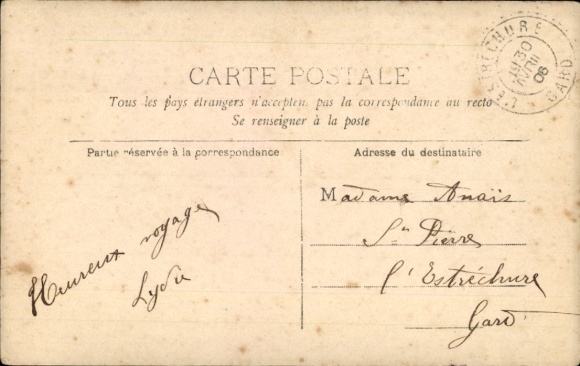 L'ESTRÉCHURE
30
AVRIL
06
GARD
CARTE POSTALE
Tous les pays étrangers n'acceptent pas la correspondance au recto
Se renseigner à la poste
Partie réservée à la correspondance
Heureux voyage
Lydie
Adresse du destinataire
Madame Anaïs
St Pierre
l'Estréchure
Gard